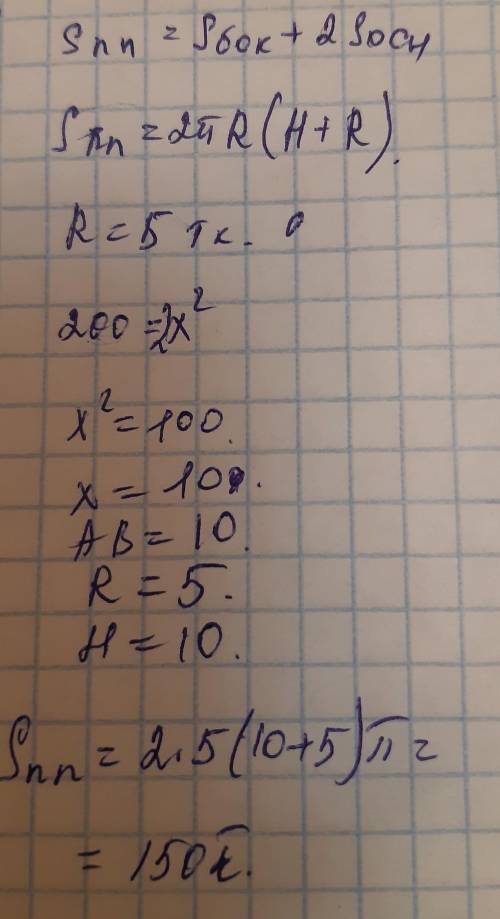 Sпп = Sбок + 2Sосн
Sпп = 2πR(H+R).
R = 5 тк.
200 = 2x²
x² = 100.
x = 10.
AB = 10.
R = 5.
H = 10.
Sпп = 2·5(10+5)π =
= 150π.